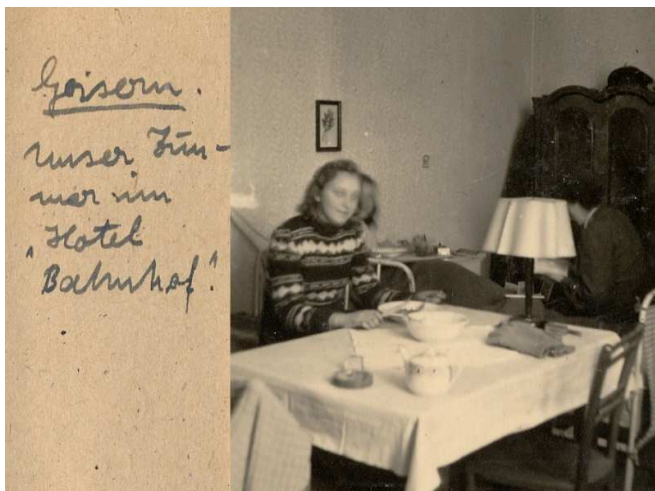 Goisern.
Unser Zim-
mer im
"Hotel
Bahnhof".